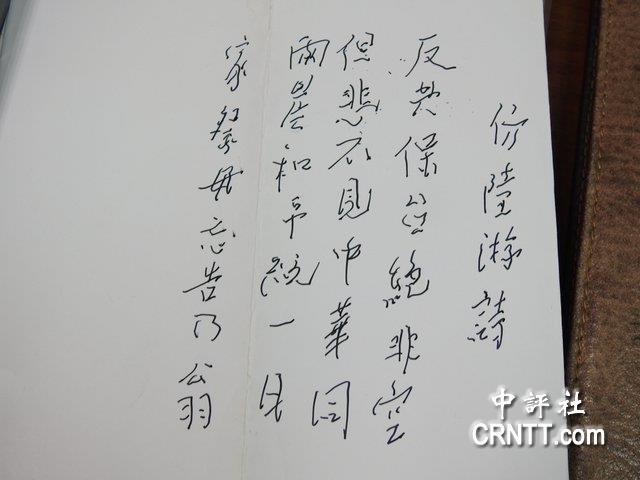 仿陸游詩
反共保台總非空
但悲不見中華同
兩岸和平統一日
家祭毋忘告乃翁
中評社
CRNTT.com